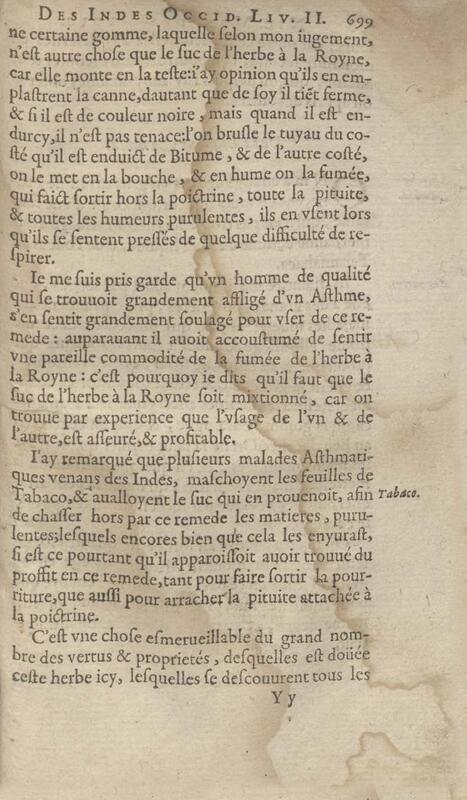 DES INDES OCCID. LIV. II. 699
ne certaine gomme, laquelle ſelon mon iugement,
n'eſt autre choſe que le ſuc de l'herbe à la Royne,
car elle monte en la teſte: i'ay opinion qu'ils en em-
plaſtrent la canne, dautant que de ſoy il tiẽt ferme,
& ſi il eſt de couleur noire, mais quand il eſt en-
durcy, il n'eſt pas tenace: l'on bruſle le tuyau du co-
ſté qu'il eſt enduict de Bitume, & de l'autre coſté,
on le met en la bouche, & en hume on la fumée,
qui faict ſortir hors la poictrine, toute la pituite,
& toutes les humeurs purulentes, ils en vſent lors
qu'ils ſe ſentent preſſés de quelque difficulté de re-
ſpirer.
Ie me ſuis pris garde qu'vn homme de qualité
qui ſe trouuoit grandement affligé d'vn Aſthme,
s'en ſentit grandement ſoulagé pour vſer de ce re-
mede: auparauant il auoit accouſtumé de ſentir
vne pareille commodité de la fumée de l'herbe à
la Royne: c'eſt pourquoy ie dits qu'il faut que le
ſuc de l'herbe à la Royne ſoit mixtionné, car on
trouue par experience que l'vſage de l'vn & de
l'autre, eſt aſſeuré, & profitable.
I'ay remarqué que pluſieurs malades Aſthmati-
ques venans des Indes, maſchoyent les feuilles de
Tabaco, & aualloyent le ſuc qui en prouenoit, afin Tabaco.
de chaſſer hors par ce remede les matieres, puru-
lentes; leſquels encores bien que cela les enyuraſt,
ſi eſt ce pourtant qu'il apparoiſſoit auoir trouué du
proffit en ce remede, tant pour faire ſortir la pour-
riture, que auſſi pour arracher la pituite attachée à
la poictrine.
C'eſt vne choſe eſmerueillable du grand nom-
bre des vertus & proprietés, deſquelles eſt doüée
ceſte herbe icy, leſquelles ſe deſcouurent tous les
Y y